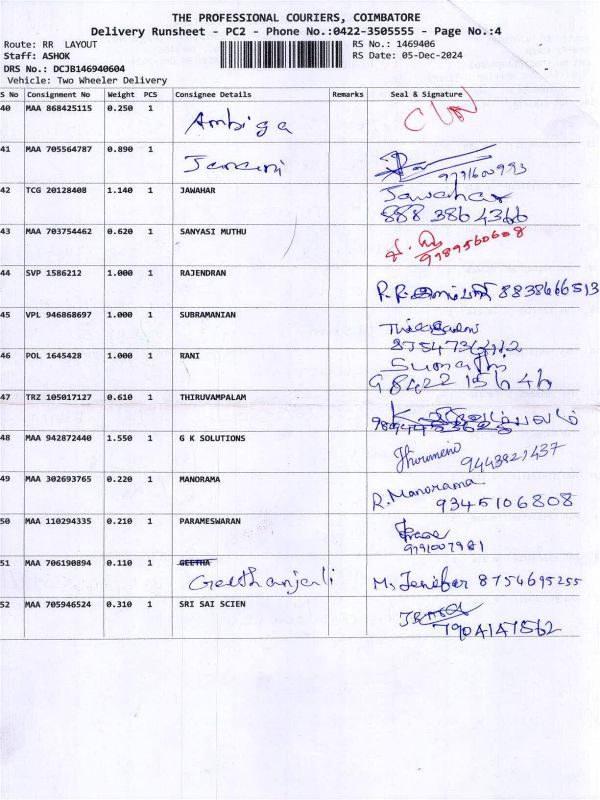 THE PROFESSIONAL COURIERS, COIMBATORE
Delivery Runsheet - PC2 - Phone No.:0422-3505555 - Page No.:4
Route: RR LAYOUT RS No.: 1469406
Staff: ASHOK RS Date: 05-Dec-2024
DRS No.: DCJB146940604
Vehicle: Two Wheeler Delivery
S No Consignment No Weight PCS Consignee Details Remarks Seal & Signature
40 MAA 868425115 0.250 1 Ambiga
41 MAA 705564787 0.890 1 Janani 9791600993
42 TCG 20128408 1.140 1 JAWAHAR Jawahar
888 386 4366
43 MAA 703754462 0.620 1 SANYASI MUTHU
9789560608
44 SVP 1586212 1.000 1 RAJENDRAN 8838666513
45 VPL 946868697 1.000 1 SUBRAMANIAN
46 POL 1645428 1.000 1 RANI Sumathi
98422 15646
47 TRZ 105017127 0.610 1 THIRUVAMPALAM
48 MAA 942872440 1.550 1 G K SOLUTIONS 9443921437
49 MAA 302693765 0.220 1 MANORAMA R. Manorama
9345106808
50 MAA 110294335 0.210 1 PARAMESWARAN
9791007981
51 MAA 706190894 0.110 1 GEETHA
Geethanjali M. Jenifar 8754695255
52 MAA 705946524 0.310 1 SRI SAI SCIEN
7904147562